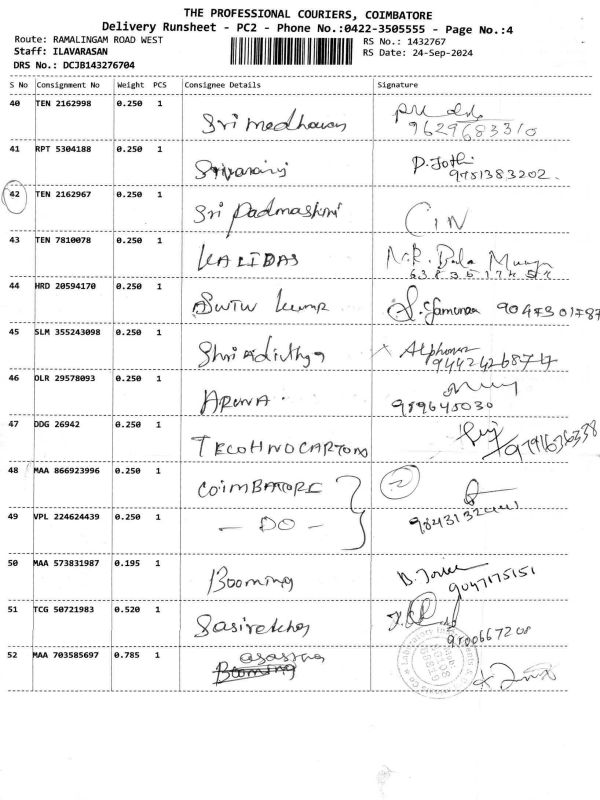 THE PROFESSIONAL COURIERS, COIMBATORE
Delivery Runsheet - PC2 - Phone No.:0422-3505555 - Page No.:4
Route: RAMALINGAM ROAD WEST
RS No.: 1432767
Staff: ILAVARASAN
RS Date: 24-Sep-2024
DRS No.: DCJB143276704
S No Consignment No Weight PCS Consignee Details Signature
40 TEN 2162998 0.250 1 Sri Medhavan
9629683310
41 RPT 5304188 0.250 1 P. Jothi
9781383202.
42 TEN 2162967 0.250 1 Sri Padmashini
43 TEN 7810078 0.250 1 KALIDAS Bala
44 HRD 20594170 0.250 1 Kumar 9047301787
45 SLM 355243098 0.250 1 Shri Alphonsa
46 DLR 29578093 0.250 1 ARUNA.
989645030
47 DDG 26942 0.250 1 TECOHNOCARTONS
48 MAA 866923996 0.250 1 COIMBATORE 2
49 VPL 224624439 0.250 1 - DO -
50 MAA 573831987 0.195 1 Booming
9047175151
51 TCG 50721983 0.520 1
52 MAA 703585697 0.785 1